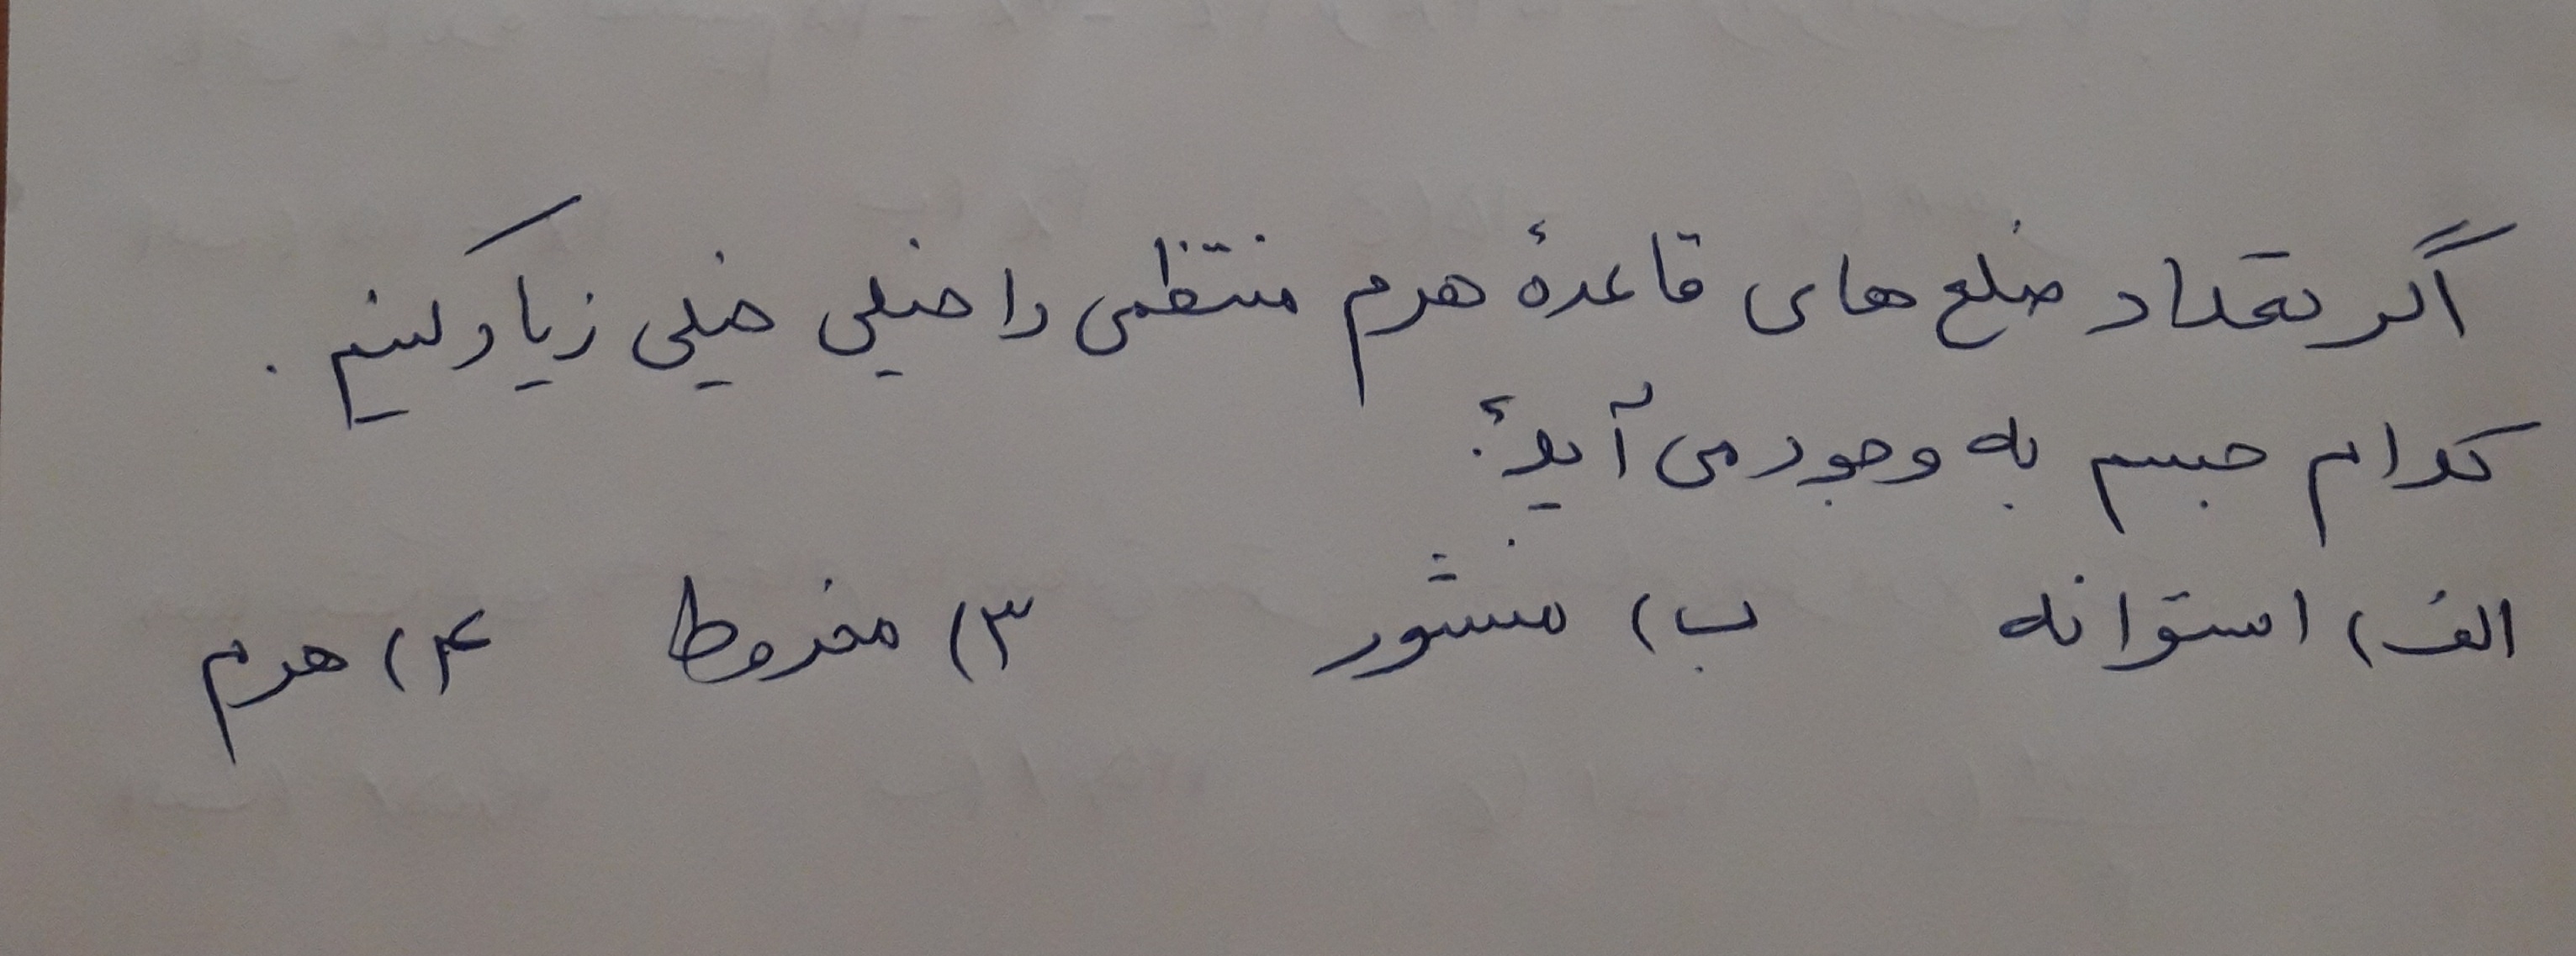 اگر تعداد ضلع های قاعدهٔ هرم منتظمی را خیلی خیلی زیاد کنیم .
کدام جسم به وجود می آید؟
الف) استوانه ب) منشور ۳) مخروط ۴) هرم